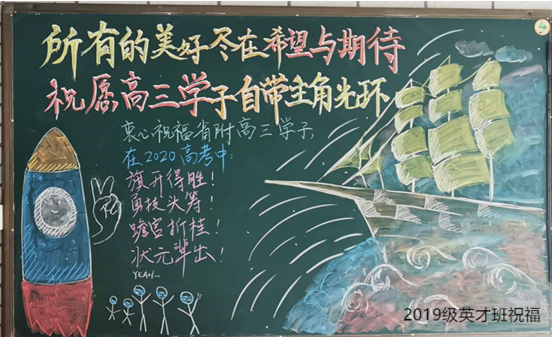 所有的美好尽在希望与期待
祝愿高三学子自带主角光环
衷心祝福省附高三学子,
在2020高考中:
旗开得胜!
勇拔头筹!
蟾宫折桂!
状元辈出!
YEAH~
2019级英才班祝福